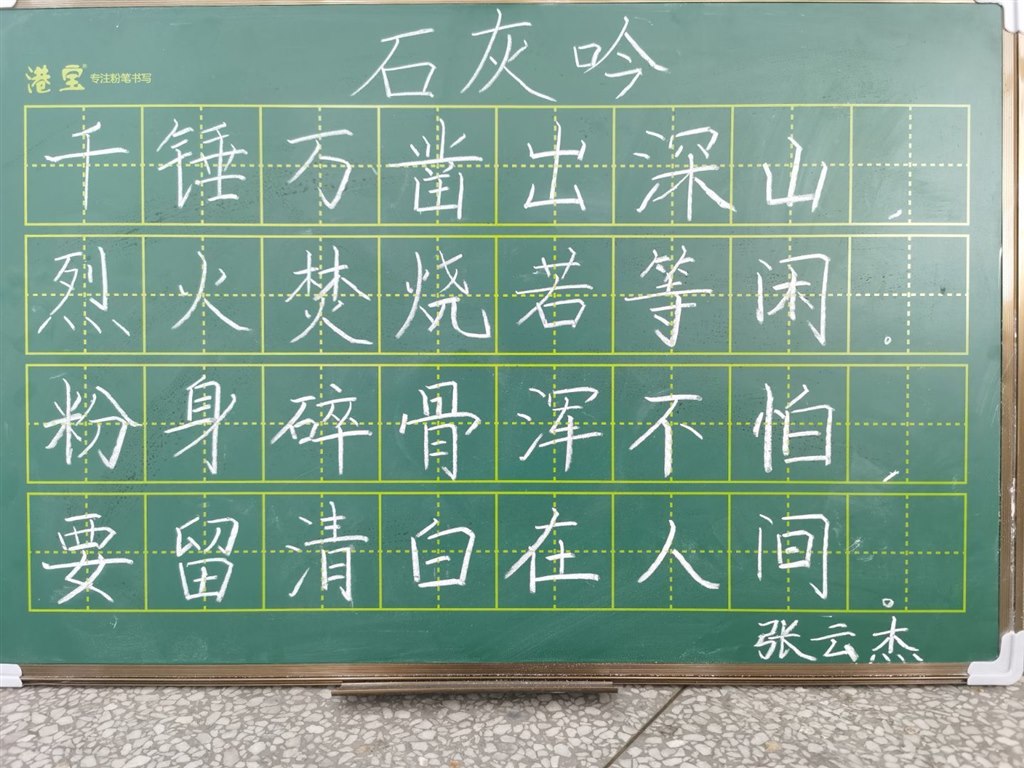 石灰吟
港宝 专注粉笔书写
千锤万凿出深山，
烈火焚烧若等闲。
粉身碎骨浑不怕，
要留清白在人间。
张云杰